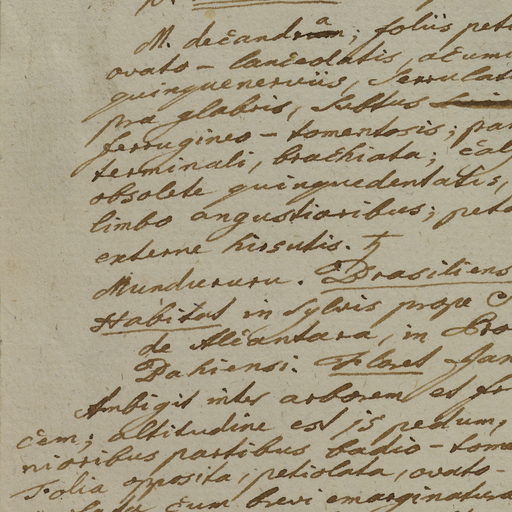 M. decandra; foliis peti
ovato-lanceolatis, acumi
quinquenerviis, serrulat
pra glabris, subtus
ferrugineo-tomentosis; pan
terminali, brachiata; cal
obsolete quinquedentatis,
limbo angustioribus; peta
externe hirsutis. ♄
Mundururu. Brasiliens
Habitat in sylvis prope
de Alcantara, in Pro
Bahiensi. Floret Jan
Ambigit inter arborem et fr
cem; altitudine est 15 pedum,
nioribus partibus badio-tome
Folia opposita, petiolata, ovato-
cum brevi emarginatura